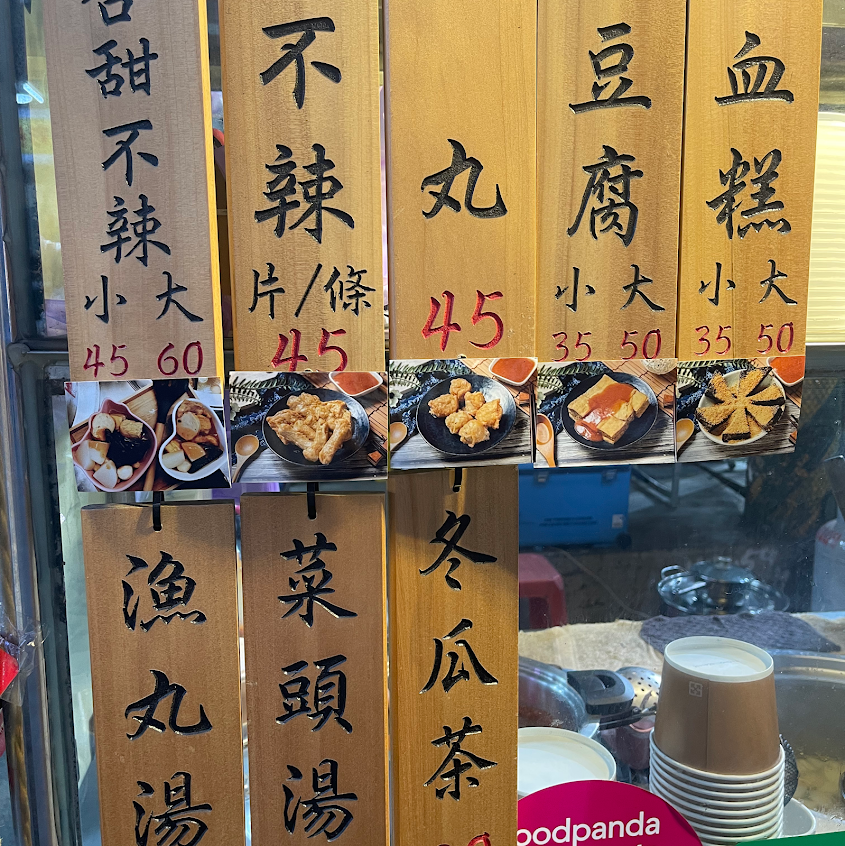 甜不辣
小 大
45 60
不辣
片/條
45
丸
45
豆腐
小 大
35 50
血糕
小 大
35 50
漁丸湯
菜頭湯
冬瓜茶
oodpanda